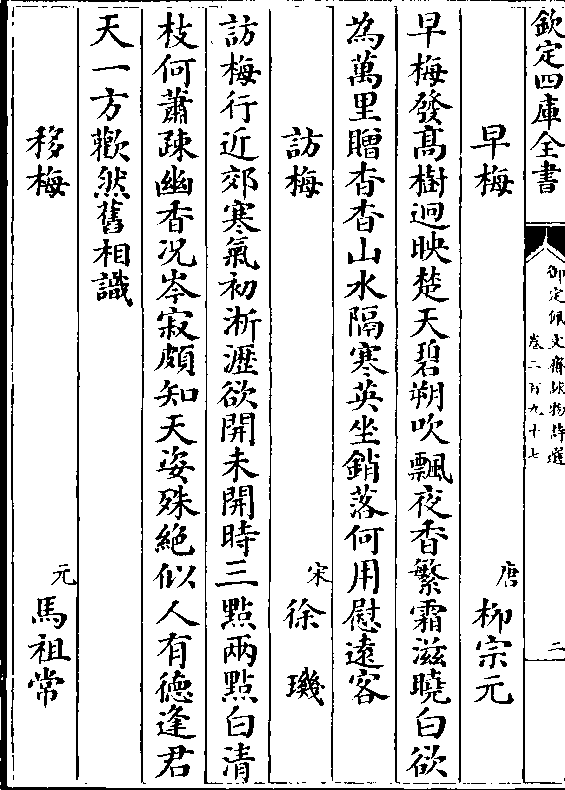 欽定四庫全書
御定佩文齋詠物詩選
卷二百九十七
二
早梅
唐
柳宗元
早梅發髙樹迥映楚天碧朔吹飄夜香繁霜滋曉白欲
為萬里贈杳杳山水隔寒英坐銷落何用慰遠客
訪梅
宋
徐璣
訪梅行近郊寒氣初淅瀝欲開未開時三點兩點白清
枝何蕭疎幽香况岑寂頗知天姿殊絶似人有德逢君
天一方歡然舊相識
移梅
元
馬祖常